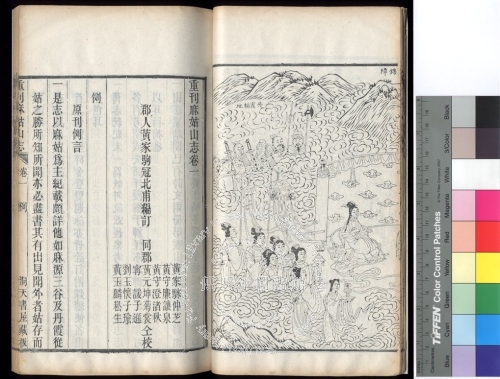 重刊麻姑山志卷一
郡人黃家駒冠北甫編訂 同郡
黃守廉讓泉
黃元坤菊裳
黃玉麟松生
仝校
例
原刊例言
一是志以麻姑為主紀載頗詳他如麻源三谷及丹霞從
姑之勝所知所聞亦必盡書其有出見聞外者姑存而
重刊麻姑山志 卷一 例 洞天書屋藏板
TIFFEN Color Control Patches
Blue
Cyan
Green
Yellow
Red
Magenta
White
3/Color
Black